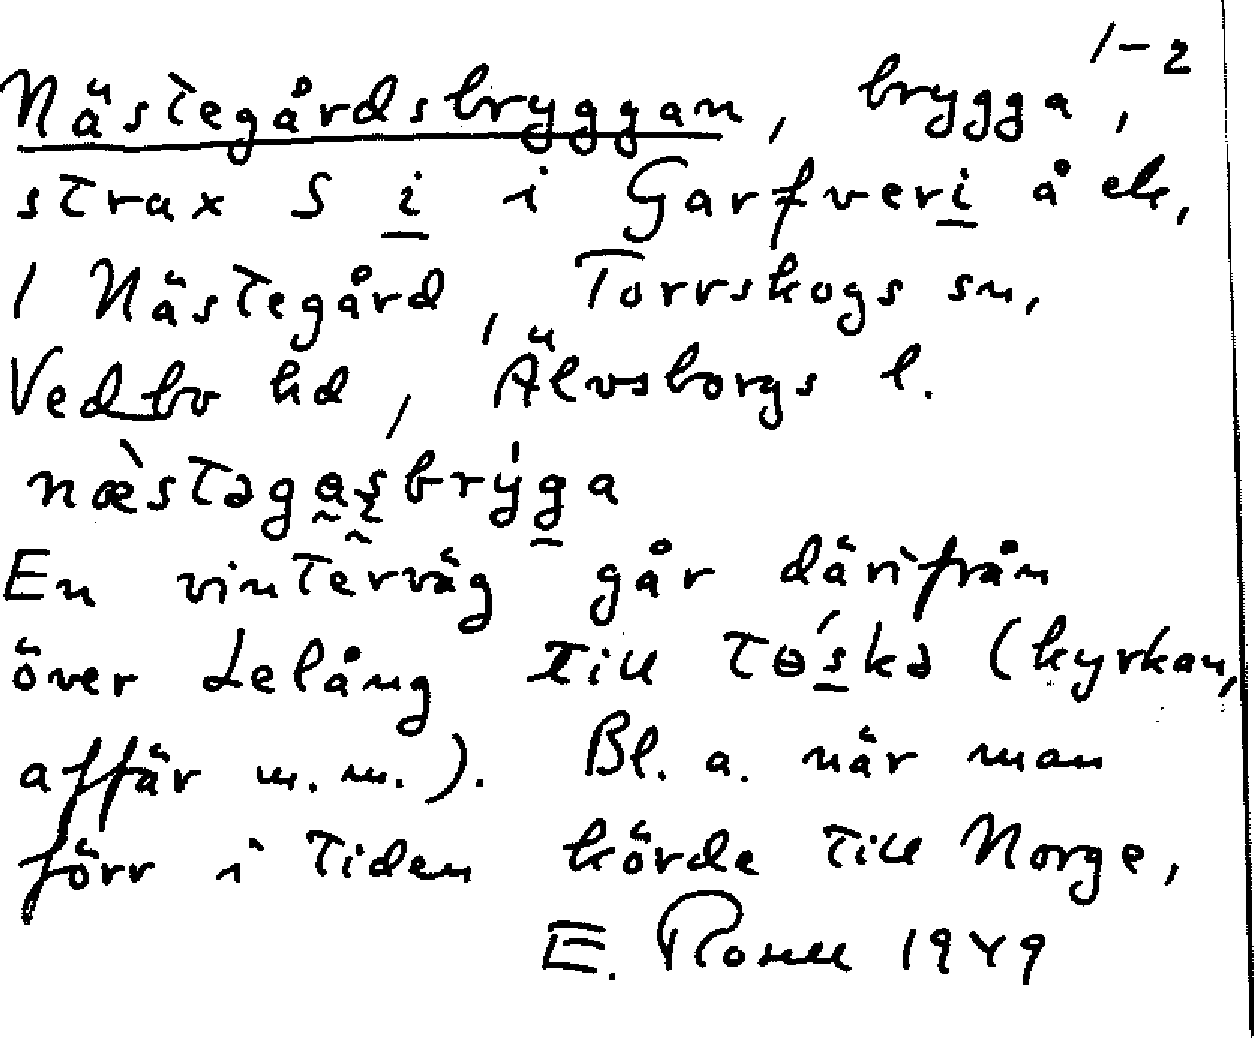 1-2
Nästegårdsbryggan, brygga,
strax S i i Garfveri å ek,
1 Nästegård, Torrskogs sn,
Vedbo hd, Älvsborgs l.
næ̀stəgasbrýga
En vinterväg går därifrån
över Lelång till Tɵ́skə (kyrkan,
affär m.m.). Bl. a. när man
förr i tiden körde till Norge,
E. Rosell 1949